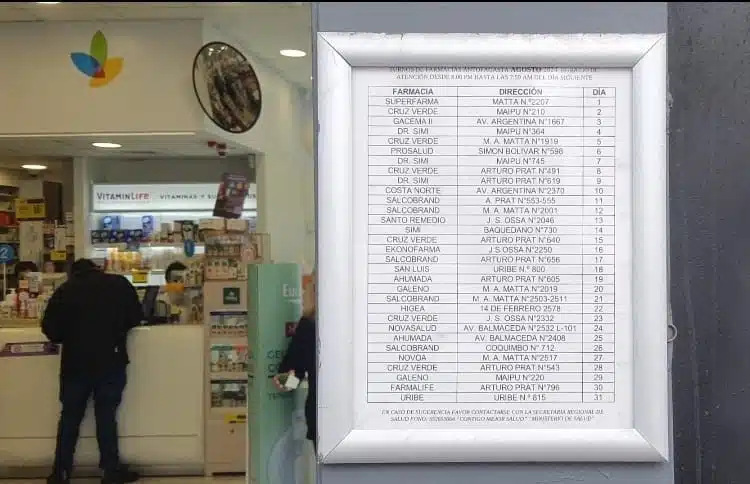 VITAMINLIFE
VITAMINAS Y
2
TURNOS DE FARMACIAS ANTOFAGASTA AGOSTO 2024 HORARIO DE
ATENCIÓN DESDE 8:00 PM HASTA LAS 7:59 AM DEL DÍA SIGUIENTE
FARMACIA DIRECCIÓN DÍA
SUPERFARMA MATTA N.º2207 1
CRUZ VERDE MAIPU N°210 2
GACEMA II AV. ARGENTINA N°1667 3
DR. SIMI MAIPU N°364 4
CRUZ VERDE M. A. MATTA N°1919 5
PROSALUD SIMON BOLIVAR N°598 6
DR. SIMI MAIPU N°745 7
CRUZ VERDE ARTURO PRAT N°491 8
DR. SIMI ARTURO PRAT N°619 9
COSTA NORTE AV. ARGENTINA N°2370 10
SALCOBRAND A. PRAT N°553-555 11
SALCOBRAND M. A. MATTA N°2001 12
SANTO REMEDIO J. S. OSSA N°2046 13
SIMI BAQUEDANO N°730 14
CRUZ VERDE ARTURO PRAT N°640 15
EKONOFARMA J.S OSSA N°2250 16
SALCOBRAND ARTURO PRAT N°656 17
SAN LUIS URIBE N.º 800 18
AHUMADA ARTURO PRAT N°605 19
GALENO M. A. MATTA N°2019 20
SALCOBRAND M. A. MATTA N°2503-2511 21
HIGEA 14 DE FEBRERO 2578 22
CRUZ VERDE J. S. OSSA N°2332 23
NOVASALUD AV. BALMACEDA N°2532 L-101 24
AHUMADA AV. BALMACEDA N°2408 25
SALCOBRAND COQUIMBO N° 712 26
NOVOA M. A. MATTA N°2517 27
CRUZ VERDE ARTURO PRAT N°543 28
GALENO MAIPU N°220 29
FARMALIFE ARTURO PRAT N°796 30
URIBE URIBE N.º 815 31
EN CASO DE SUGERENCIA FAVOR CONTACTARSE CON LA SECRETARIA REGIONAL DE
SALUD FONO: "CONTIGO MEJOR SALUD" "MINISTERIO DE SALUD"